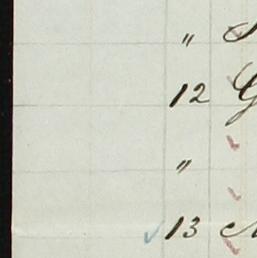 "
12
"
13